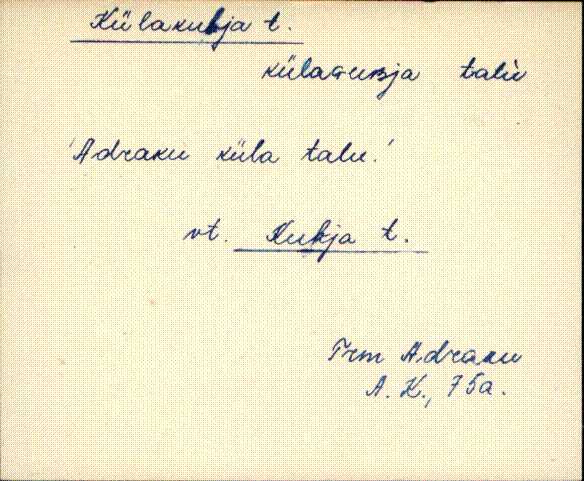 Külakubja t.
külaguʙja talù
'Adraku küla talu.'
vt. Kubja t.
Trm Adraku
A. K., 75a.